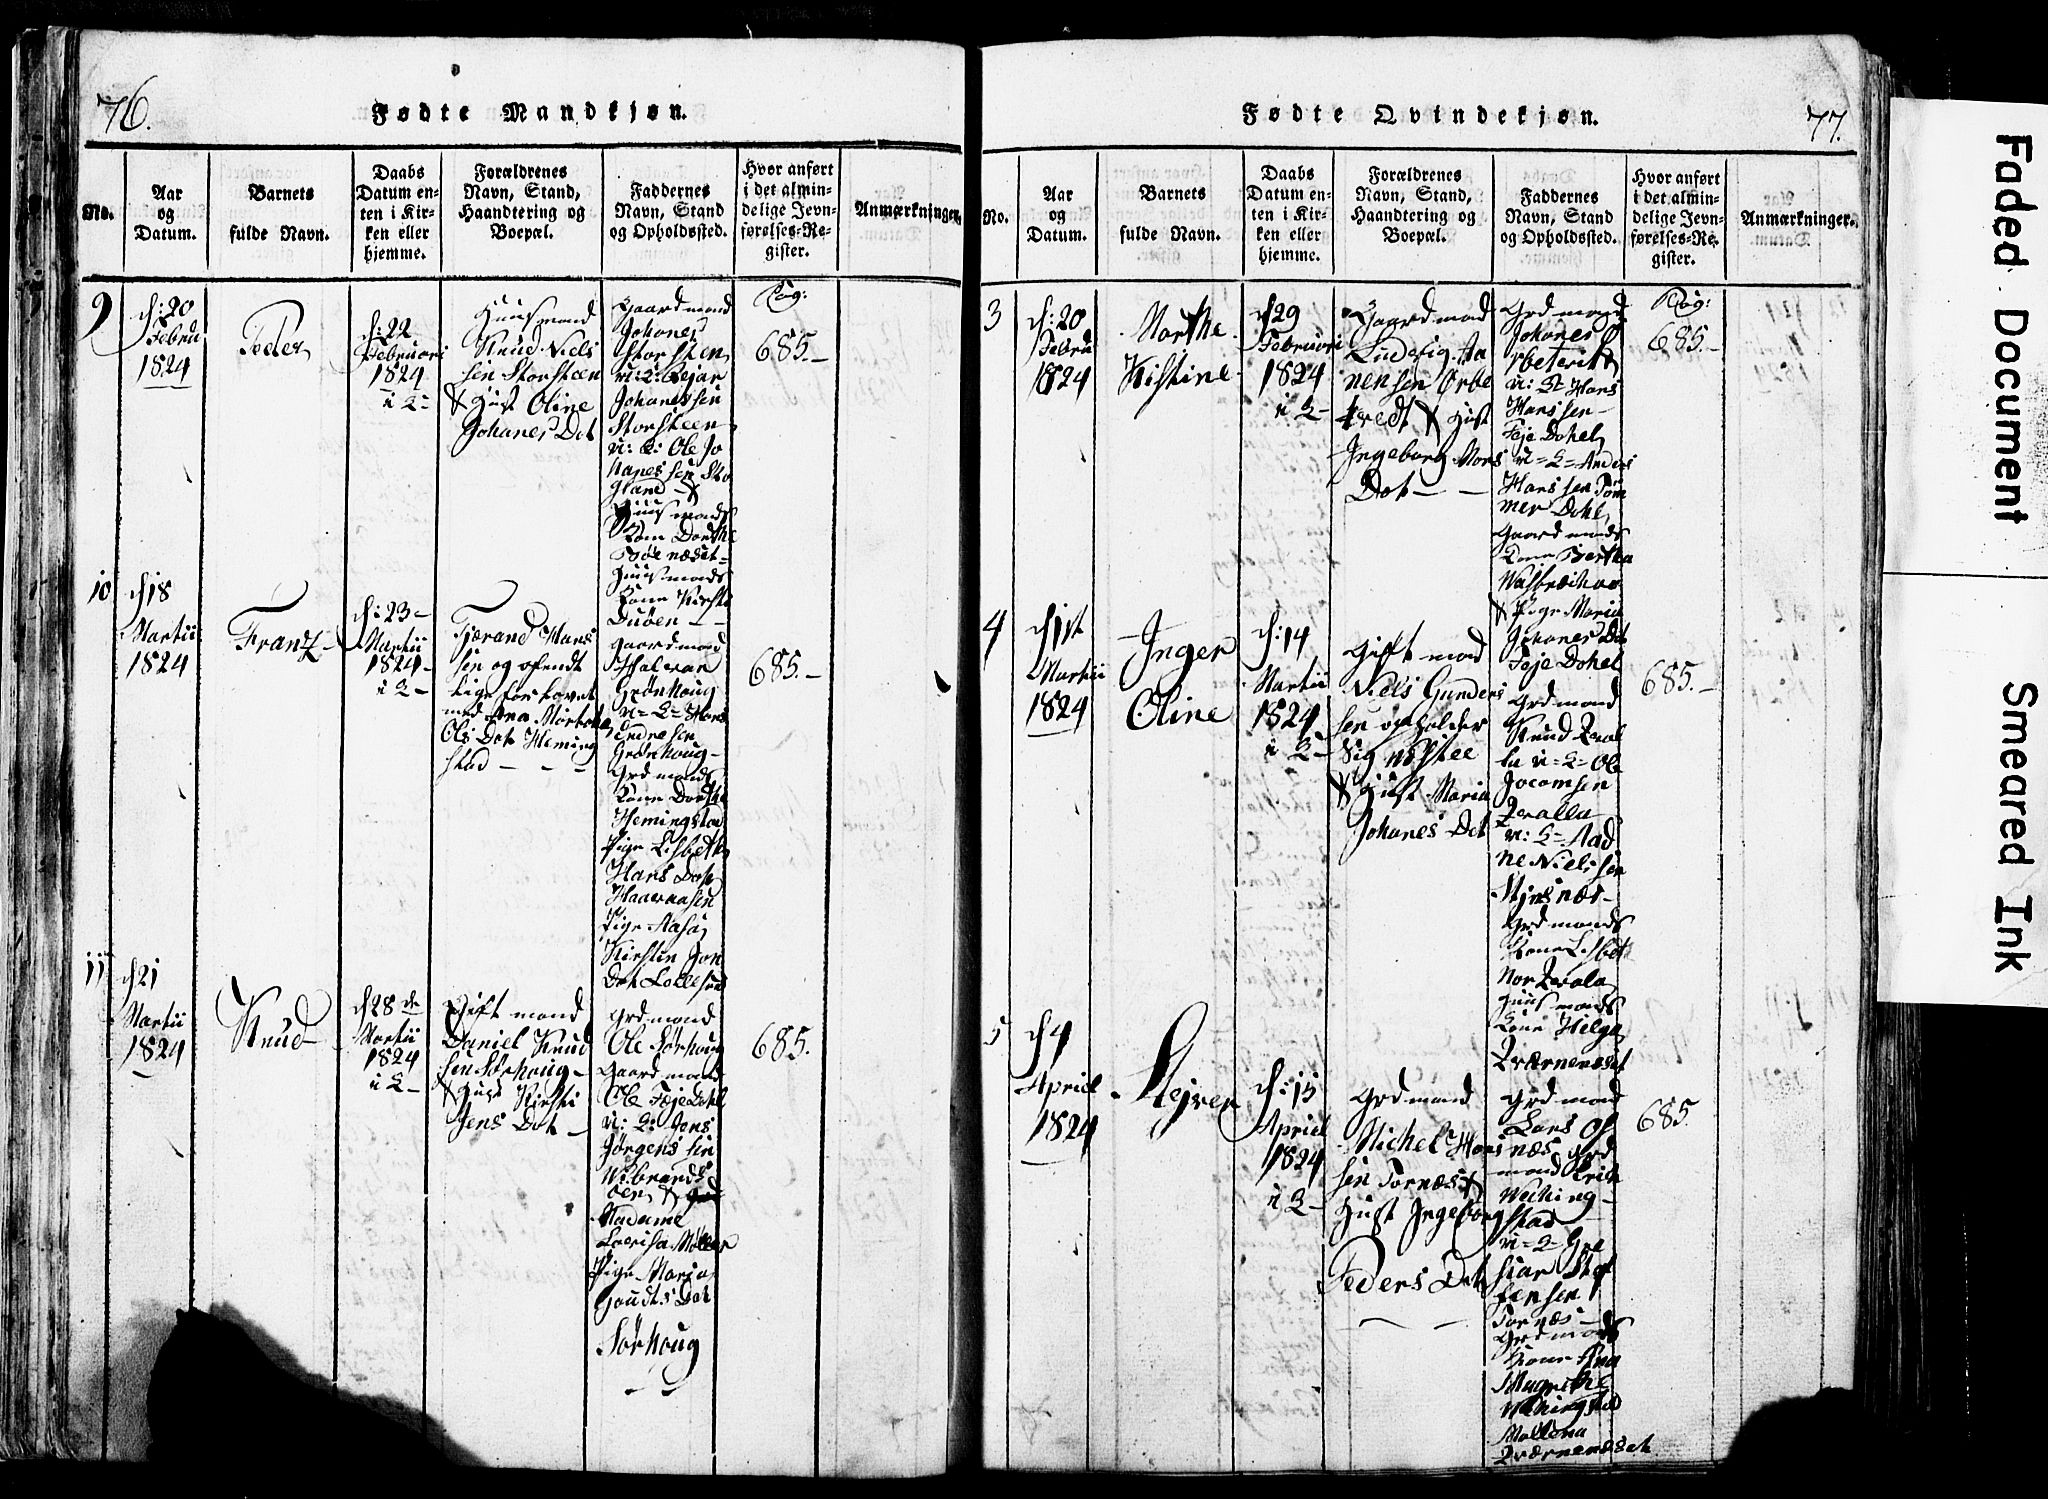 76.
Fødte Mandkjøn.
No.
Aar
og
Datum.
Barnets
fulde Navn.
Daabs
Datum en-
ten i Kir-
ken eller
hjemme.
Forældrenes
Navn, Stand,
Haandtering og
Boepæl.
Faddernes
Navn, Stand
og Opholdssted.
Hvor anført
i det almin-
delige Jevn-
førelses-Re-
gister.
Anmærkninger.
9
d: 20
Febru
1824
Peder
d: 22
Februari
1824
i K-
Huusmand
Knud Niels
sen Storsteen
& Hust Oline
Johanes Dot
Gaardmand
Johanes
Storsteen
u: K: Rejar
Johanessen
Storsteen
u: K: Ole Jo
hanessen Sto
gland &
Huusmands
Kone Dorthe
Huusmands
Kone Kirsti
Duöen
Pag:
685.-
10
d 18
Martii
1824
Frantz
d: 23-
Martii
1824-
i K-
Tjærand Hans
sen og ofendt
lige forlovet
med Ana Martha
Ols Dot Heming
stad - - -
Gaardmand
Halvar
Grönhoug
u=K= Hans
Endresen
Grönhoug-
Grdmands
Kone Dorthe
Hemingstad
Pige Lisbeth
Hans Dot
Pige Aasa
Kirstin Jon
Dot
685.-
11
d 21
Martii
1824
Knud
d 28 de
Martii
1824
i K-
Gift mand
Daniel Knud
sen Sörhoug-
& Hust Kirsti
Jens Dot -
Grdmand
Ole Sörhoug
Gaardmand
Ole Feje Dahl
u: K: Jens
Jörgensen
Wibrands
öen &
Madame
Lovisa Möller
Pige Maria
Gouds Dot
Sörhoug
685.
77.
Fødte Qvindekjøn.
No.
Aar
og
Datum.
Barnets
fulde Navn.
Daabs
Datum en-
ten i Kir-
ken eller
hjemme.
Forældrenes
Navn, Stand,
Haandtering og
Boepæl.
Faddernes
Navn, Stand
og Opholdssted.
Hvor anført
i det almin-
delige Jevn-
førelses-Re-
gister.
Anmærkninger.
3
d: 20
Febru
1824
Marthe
Kistine
d 29
Februari
1824
i K-
Gaardmand
Ludevig Aa
nensen Örbe
kredt & Hust
Ingeborg Mons
Dot - -
Grdmand
Johanes
u: K= Hans
Hanssen-
Feje Dahl
u=K=Anders
Hanssen Töm
mer Dahl
Gaardmands
Kone Bertha
& Pige Maria
Johanes Dot
Feje Dahl
Pag:
685.-
4
d 1st
Martii
1824
Inger
Oline
d: 14
Martii
1824
i K-
Gift mand
Niels Gunders
sen opholder
sig
& Hust Maria
Johanes Dot
Grdmand
Knud Qval
la u=K=Ole
Jocomsen
Qvalla
u: K= Aad
ne Nielssen
Grdmands
Kone Lisbet
Nor Qvala
Huusmands
Kone Helga
Qværnenæset
685.-
5
d 4
Apriel
1824
Sejver
d: 15
Apriel
1824
i K-
Grdmand
Michel Hans
sen Tornæs &
Hust Ingeborg
Peders Dot
Grdmand
Lars Op
næs Grd
mand Erich
Weching
stad
u=K= Gre
siar Stef
fensen
Tornæs-
Grdmands
Kone Ana
Magrethe
Wechingstad
Mallena
Qværnenæset
685.
Faded Document
Smeared Ink